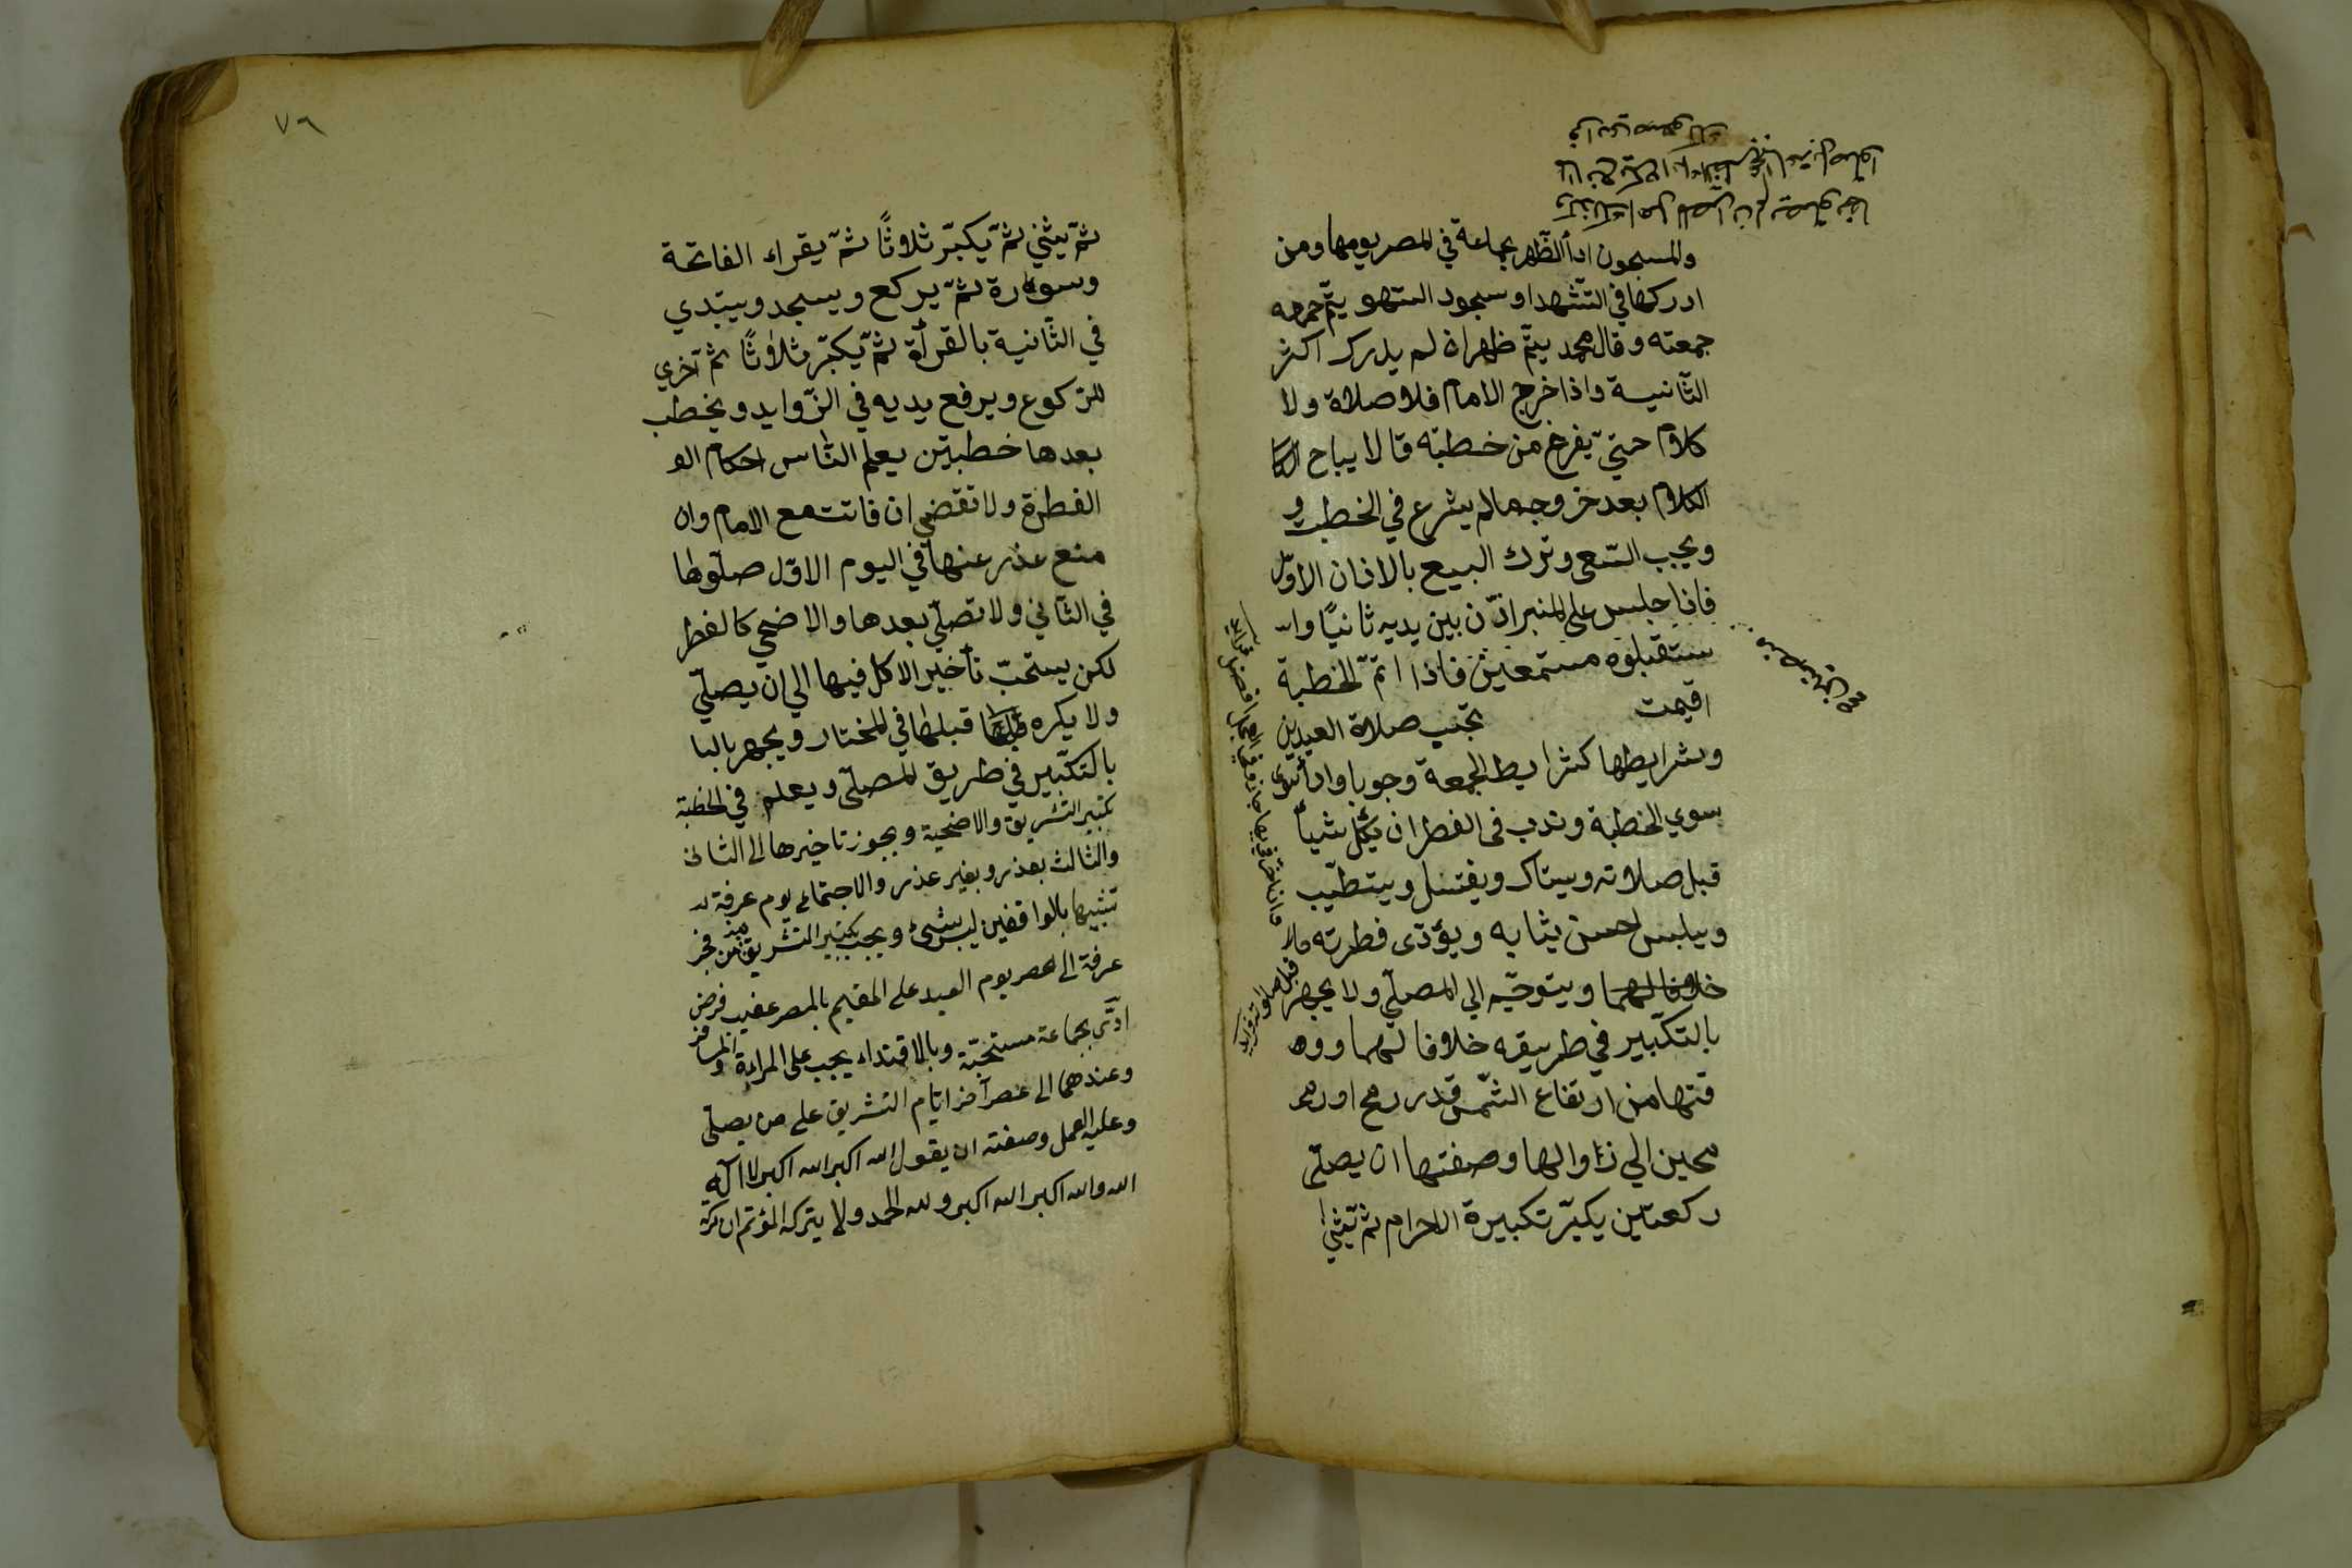 والمسجون اداأ الظّهر بجماعة في المصر يومها ومن
ادركها في التّشهد او سجود السّهو يتمّ
جمعته وقال محمد يتمّ ظهرا ان لم يدرك اكثر
الثّانيسة واذا خرج الامام فلا صلاة ولا
كلام حتيّ يفرغ من خطبته قالا يباح
الكلام بعد خروجه مالم يشرع في الخطبت و
ويجب السّعي وترك البيع بالاذان الاوّل
فاذا جلس على المنبر اذّن بين يديه ثانيًا واسـ
ستقبلوه مستمعين فاذا اتمّ الخطبة
اقيمت تجب صلاة العيدين
وشرايطها كشرايط الجمعة وجوبا واداأ
سوي الخطبة وندب في الفطر ان يأكل شيأ
قبل صلاته ويستاك ويغتسل ويتطيّب
ويلبس احسن يثابه ويؤدّى فطرته
خلافا لهما ويتوجّه الي المصلّي ولا يجهر
بالتكبّير في طريقه خلافا لهما وو
قتها من ارتفاع الشّمس قدر رمح او رمحـ
محين الي زاوالها وصفتها ان يصلّى
ركعتين يكبّر تكبيرة الاحرام ثمّ يثني
٧٦
ثمّ يثني ثمّ يكبّر ثلاوثًا ثمّ يقراء الفاتحة
وسورة ثمّ يركع ويسجد ويبتدي
في الثّانية بالقرأة ثمّ يكبّر ثلاوثًا ثم اخري
للرّكوع ويرفع يديه في الزّوايد ويخطب
بعدها خطبتين يعلم النّاس احكام الو
الفطرة ولا تقضي ان فاتت مع الامام وان
منع عذر عنها في اليوم الاوّل صلّوها
في الثّاني ولا تصلّي بعدها والاضحي كالفطر
لكن يستحبّ تأخير الاكل فيها الي ان يصلّي
ولا يكره قبلها في المختار ويجهر بالبا
بالتكبّير في طريق المصلّى ويعلم في الخطبة
تكبير التّشريق والاضحية ويجوز تاخيرها الى الثانى
والثالث بعذر وبغير عذر والاجتماع يوم عرفة
تشبيها بالواقفين ليس بشئ ويجب تكبير التّشريق من فجر
عرفة الى عصر يوم العيد على المقيم بالمصر عقيب فرض
ادّى بجماعة مستحبّة وبالاقتداء يجب على المراءة والمسافر
وعندهما الى عصر آخر ايّام التشريق على من يصلّى
وعليه العمل وصفته ان يقول الله اكبر الله اكبر لا اله
الله والله اكبر الله اكبر ولله الحمد ولا يتركه المؤتم ان تركه